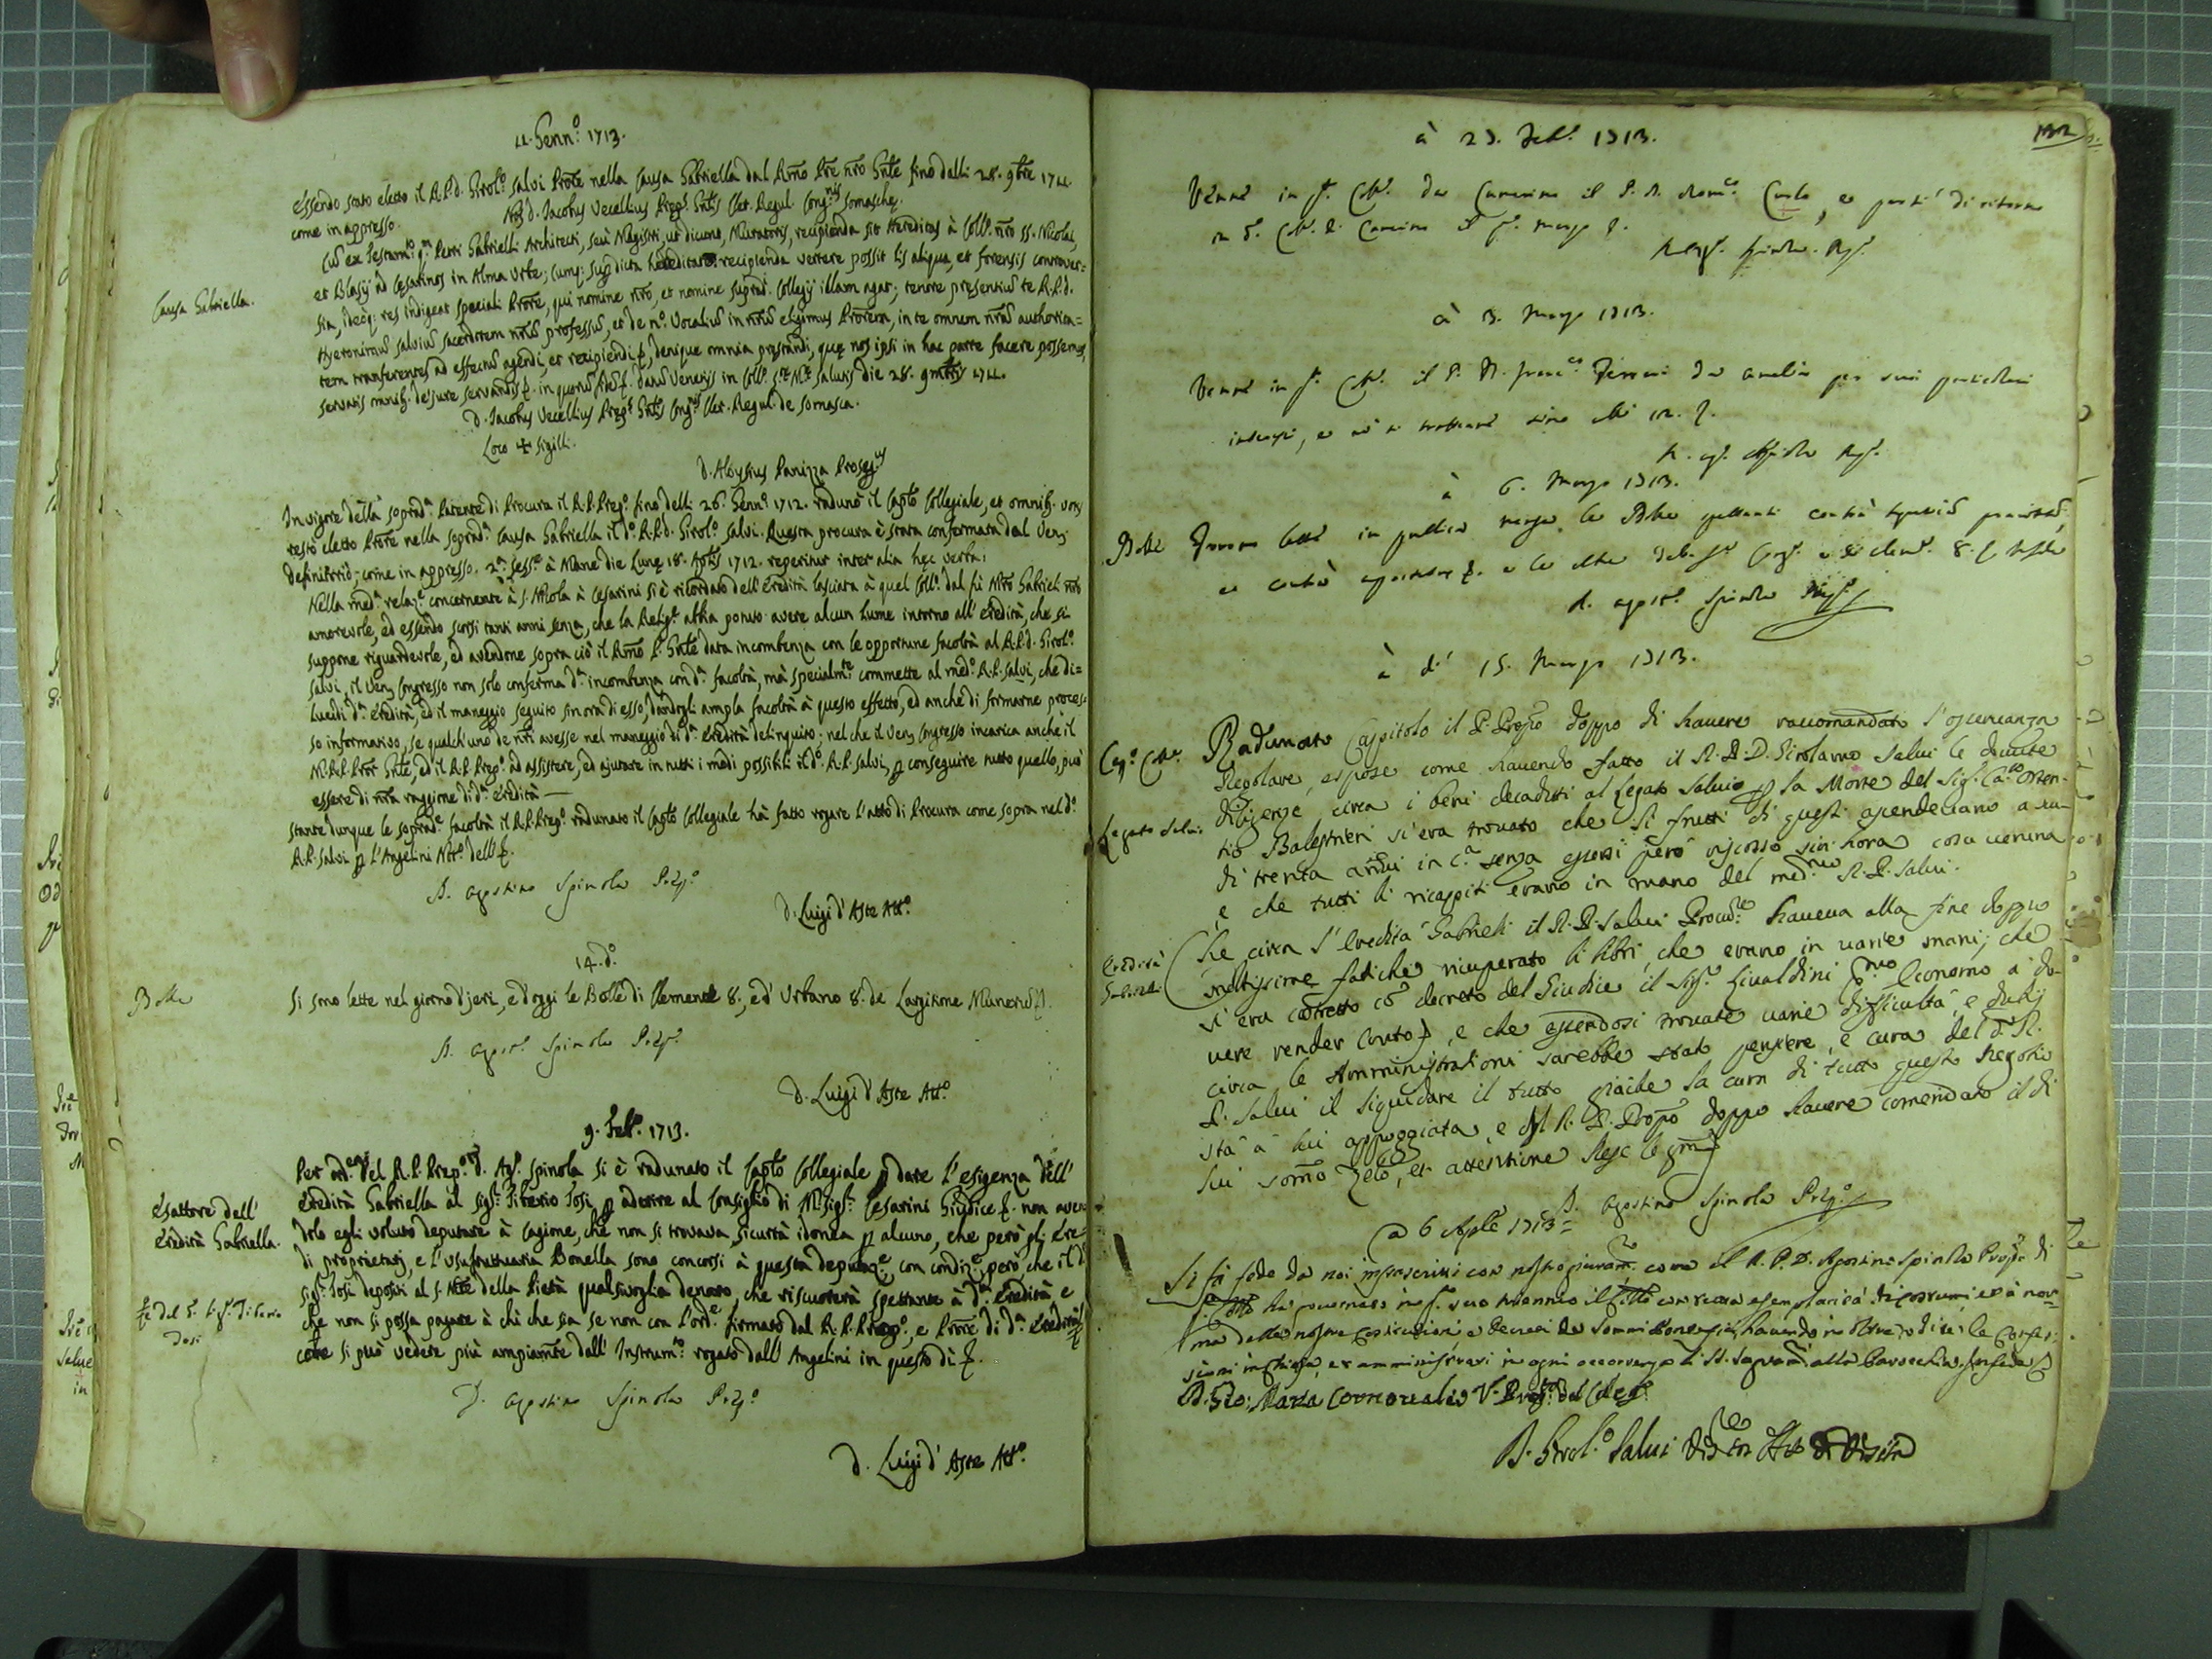 11. Genn.º 1713.
Essendo stato eletto il R.P.d. Girol.º Salvi Prore nella Causa Gabriella dal Rmo Pre nro Gnle fino delli 28. 9bre 1711.
come in appresso.
Nos d. Jacobus Vecellius Prep.s Gnlis Cler. Regul. Cong.nis Somaschę.
Cum ex Testam.to q.m Petri Gabrielli Architecti, seù Magistri, ut dicunt, Muratoris, recipienda sit Hereditas à Coll.º nro SS. Nicolai,
et Blasij ad Cęsarinos in Alma Urbe; cumq; supdicta hereditate recipienda vertere possit lis aliqua, et forensis controver=
sia, ideoq; res indigeat speciali Prore, qui nomine nro, et nomine suprad. Collegij illam agat; tenore presentium te R.P.d.
Hyeronimum Salvium sacerdotem nrum professum, et de n.º Vocalium in nrum eligimus Prorem, in te omnem nram authorita=
tem tranferentes ad effectum agendi, et recipiendi &, denique omnia prestandi, quę nos ipsi in hac parte facere possemus,
servatis omnib. de jure servandis &. in quorum fidem &. datum Venetijs in Coll.º S.tę M.ę Salutis die 28. 9mbris 1711.
D. Jacobus Vecellius Prep.s Gnlis Cong.nis Cler. Regul. de Somasca.
Loco ✠ Sigilli.
d. Aloysius Panizza Proseg.us
Causa Gabriella.
In vigore della soprad.a Patente di Procura il R.P. Prep.º fino delli 26. Genn.º 1712. radunò il Caplo Collegiale, et omnib. votis
restò eletto Prore nella soprad.a Causa Gabriella il d.º R.P.d. Girol.º Salvi. Questa procura è stata confermata dal Ven.
Definitorio; come in appresso. 2.a Sess.e à Mane die Lunę 18. Aplis 1712. reperitur inter alia hęc verba:
Nella med.a relaz.e concernente à S. Nicola à Cesarini si è ricordato dell'Eredità lasciata à quel Coll.º dal fù Mro Gabrieli nro
amorevole, ed essendo scorsi tanti anni senza, che la Relig.e abbia potuto avere alcun lume intorno all'Eredità, che si
suppone riguardevole, ed avendone sopra ciò il Rmo P. Gnle data incombenza con le opportune facoltà al R.P.d. Girol.º
Salvi, il Ven. Congresso non solo conferma d.a incombenza con d.a facoltà, mà specialm.te commette al med.º R.P. Salvi, che di=
lucidi d.a Eredità, ed il maneggio seguito sin ora di esso, dandogli ampla facoltà à questo effetto, ed anche di formarne proces=
so informativo, se qualch'uno de nri avesse nel maneggio di d.a Eredità delinquito; nel che il Ven. Congresso incarica anche il
M.R.P. Pror Gnle, ed il R.P. Prep.º ad assistere, ed ajutare in tutti i modi possibili il d.º R.P. Salvi, p conseguire tutto quello, può
essere di nra raggione di d.a Eredità —
Stante dunque le soprad.e facoltà il R.P. Prep.º radunato il Caplo Collegiale hà fatto rogare l'atto di Procura come sopra nel d.º
R.P. Salvi p l'Angelini Not.º dell' &.
D. Agostino Spinola Prep.º
d. Luigi d'Aste Att.º
14. d.º
Bolle
Si sono lette nel giorno d'jeri, e d'oggi le Bolle di Clemente 8., ed' Urbano 8.º de Largitione Munerum &.
D. Agost.º Spinola Prep.º
d. Luigi d'Aste Att.º
9. Feb.º 1713.
Per ord.e del R.P. Prep.to d. Ag.º Spinola si è radunato il Caplo Collegiale p dare l'esigenza dell'
Eredità Gabriella al Sig.r Tiberio Tosi, p aderire al Consiglio di M. Sig.r Cesarini Giudice &. non aven=
dolo egli voluto deputare à cagione, che non si trovava sicurtà idonea p alcuno, che però gli Ere=
di proprietarj, e l'usufruttuaria Bonella sono concorsi à questa deputaz.e, con condiz.e però, che il d.º
Sig.r Tosi depositi al S. Mte della Pietà qualsivoglia denaro, che riscuoterà spettante à d.a Eredità e
che non si possa pagare à chi che sia se non con l'ord.e firmato dal R.P. Prep.º, e Prore di d.a Eredità &
come si può vedere più ampiamte dall'Instrum.to rogato dall'Angelini in questo dì &.
Esattore dell'
Eredità Gabriella.
del S.r Tiberio
Tosi
D. Agostino Spinola Prep.º
d. Luigi d'Aste Att.º
132
à 23. Feb.º 1713.
Venne in q.º Coll.º da Camerino il P. D. Dom.co Carlo, e partì di ritorno
Camerino
Agost. Spinola Prep.
à 3. Marzo 1713.
Venne in q.º Coll.º il P. D. Franc.co Ferrari da Amelia per suoi particolari
interessi, e vi si trattenne sino alli 12. &.
D. Ag. Spinola Prep.
à 6. Marzo 1713.
Bolle
Furono lette in publica mensa le Bolle
D. Agost. Spinola Prep.
à dì 15. Marzo 1713.
Cap.º Coll.e
Radunato Cappitolo il P. Propo doppo di havere raccomandato l'osservanza
Regolare, espose come havendo fatto il R.P.D. Girolamo Salvi le dovute
diligenze circa i beni decaduti al Legato Salvio p la Morte del Sig.r
Legato Salvi.
tio Balestrieri si era trovato che li frutti di questi ascendevano a scu=
di trenta annui in c.a senza essersi però riscosso sin hora cosa veruna
e che tutti li ricapiti erano in mano del med.mo R.P. Salvi.
Eredità
Gabrieli
Che circa l'Eredità Gabrieli il R.P. Salvi Procu.re haveva alla fine doppo
moltissime fatiche ricuperato li libri, che erano in varie mani; che
si era costretto cō decreto del Giudice il Sig.r Rivaldini P.mo Economo a do=
vere render Conto, e che essendosi trovate varie difficultà, e dubij
circa le Amministrationi sarebbe stato pensiere, e cura del d.º R.
P. Salvi il liquidare il tutto la cura di tutto questo Negotio
stà a lui appoggiata, e d.º R.P. Propo doppo havere comendato il di
lui somo Zelo, et attentione
D. Agostino Spinola Prep.º
a 6 Aple 1713
Si fà fede da noi infrascritti con nostro giuram.to come il R.P.D. Agostino Spinola Propo di
q.º Coll.º hà governato in q.º suo triennio con tutta esemplarità di costumi, et à nor=
ma delle nostre Costituzioni, e Decreti
sioni in chiesa, et amministrati in ogni occorrenza li SS. Sagram.ti alla Parocchia. In fede &
D. Gio: Maria V. Prep.to del Colleg.º
D. Girol.º Salvi